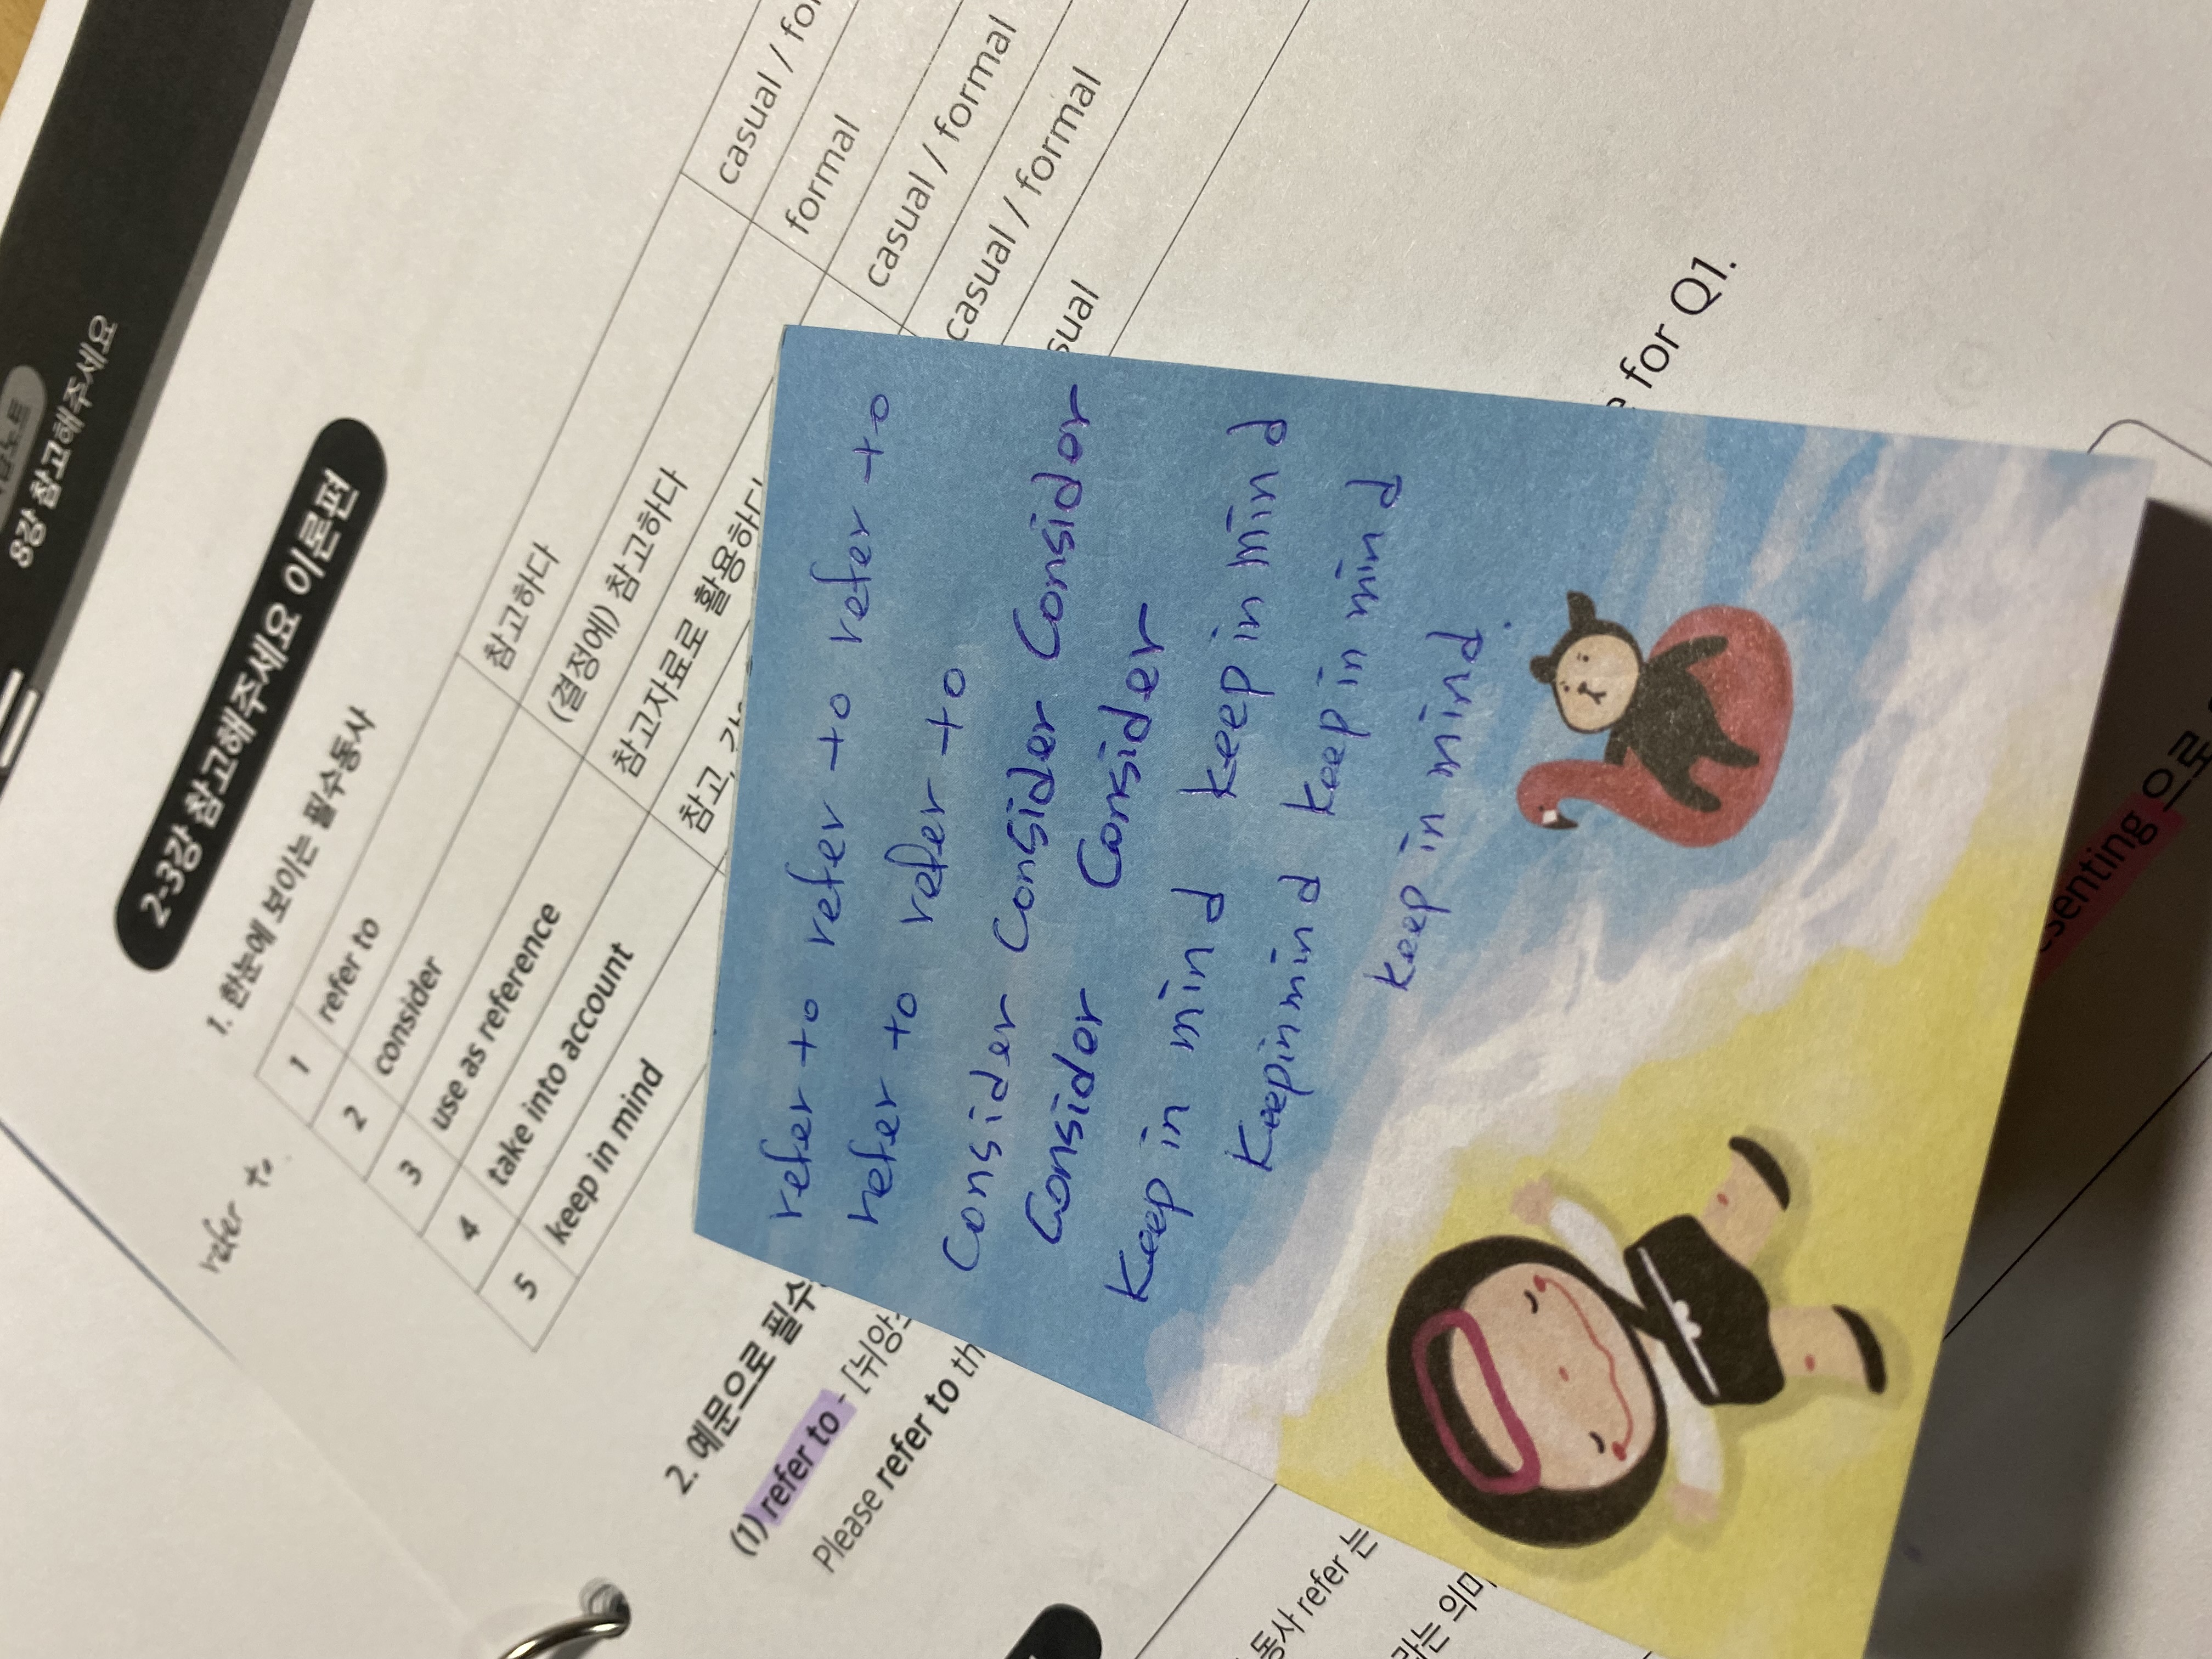 8강 참고해주세요
2-3강 참고해주세요 이론편
1. 한눈에 보이는 필수동사
refer to.
1 refer to 참고하다 casual /
2 consider (결정에) 참고하다 formal
3 use as reference 참고자료로 활용하다 casual / formal
4 take into account 참고, casual / formal
5 keep in mind
2. 예문으로
(1) refer to - [뉘앙스
Please refer to
for Q1.
refer to refer to refer to
refer to refer to
Consider Consider Consider
Consider Consider
keep in mind keep in mind
keep in mind keep in mind
keep in mind.
동사 refer 는
라는
으로